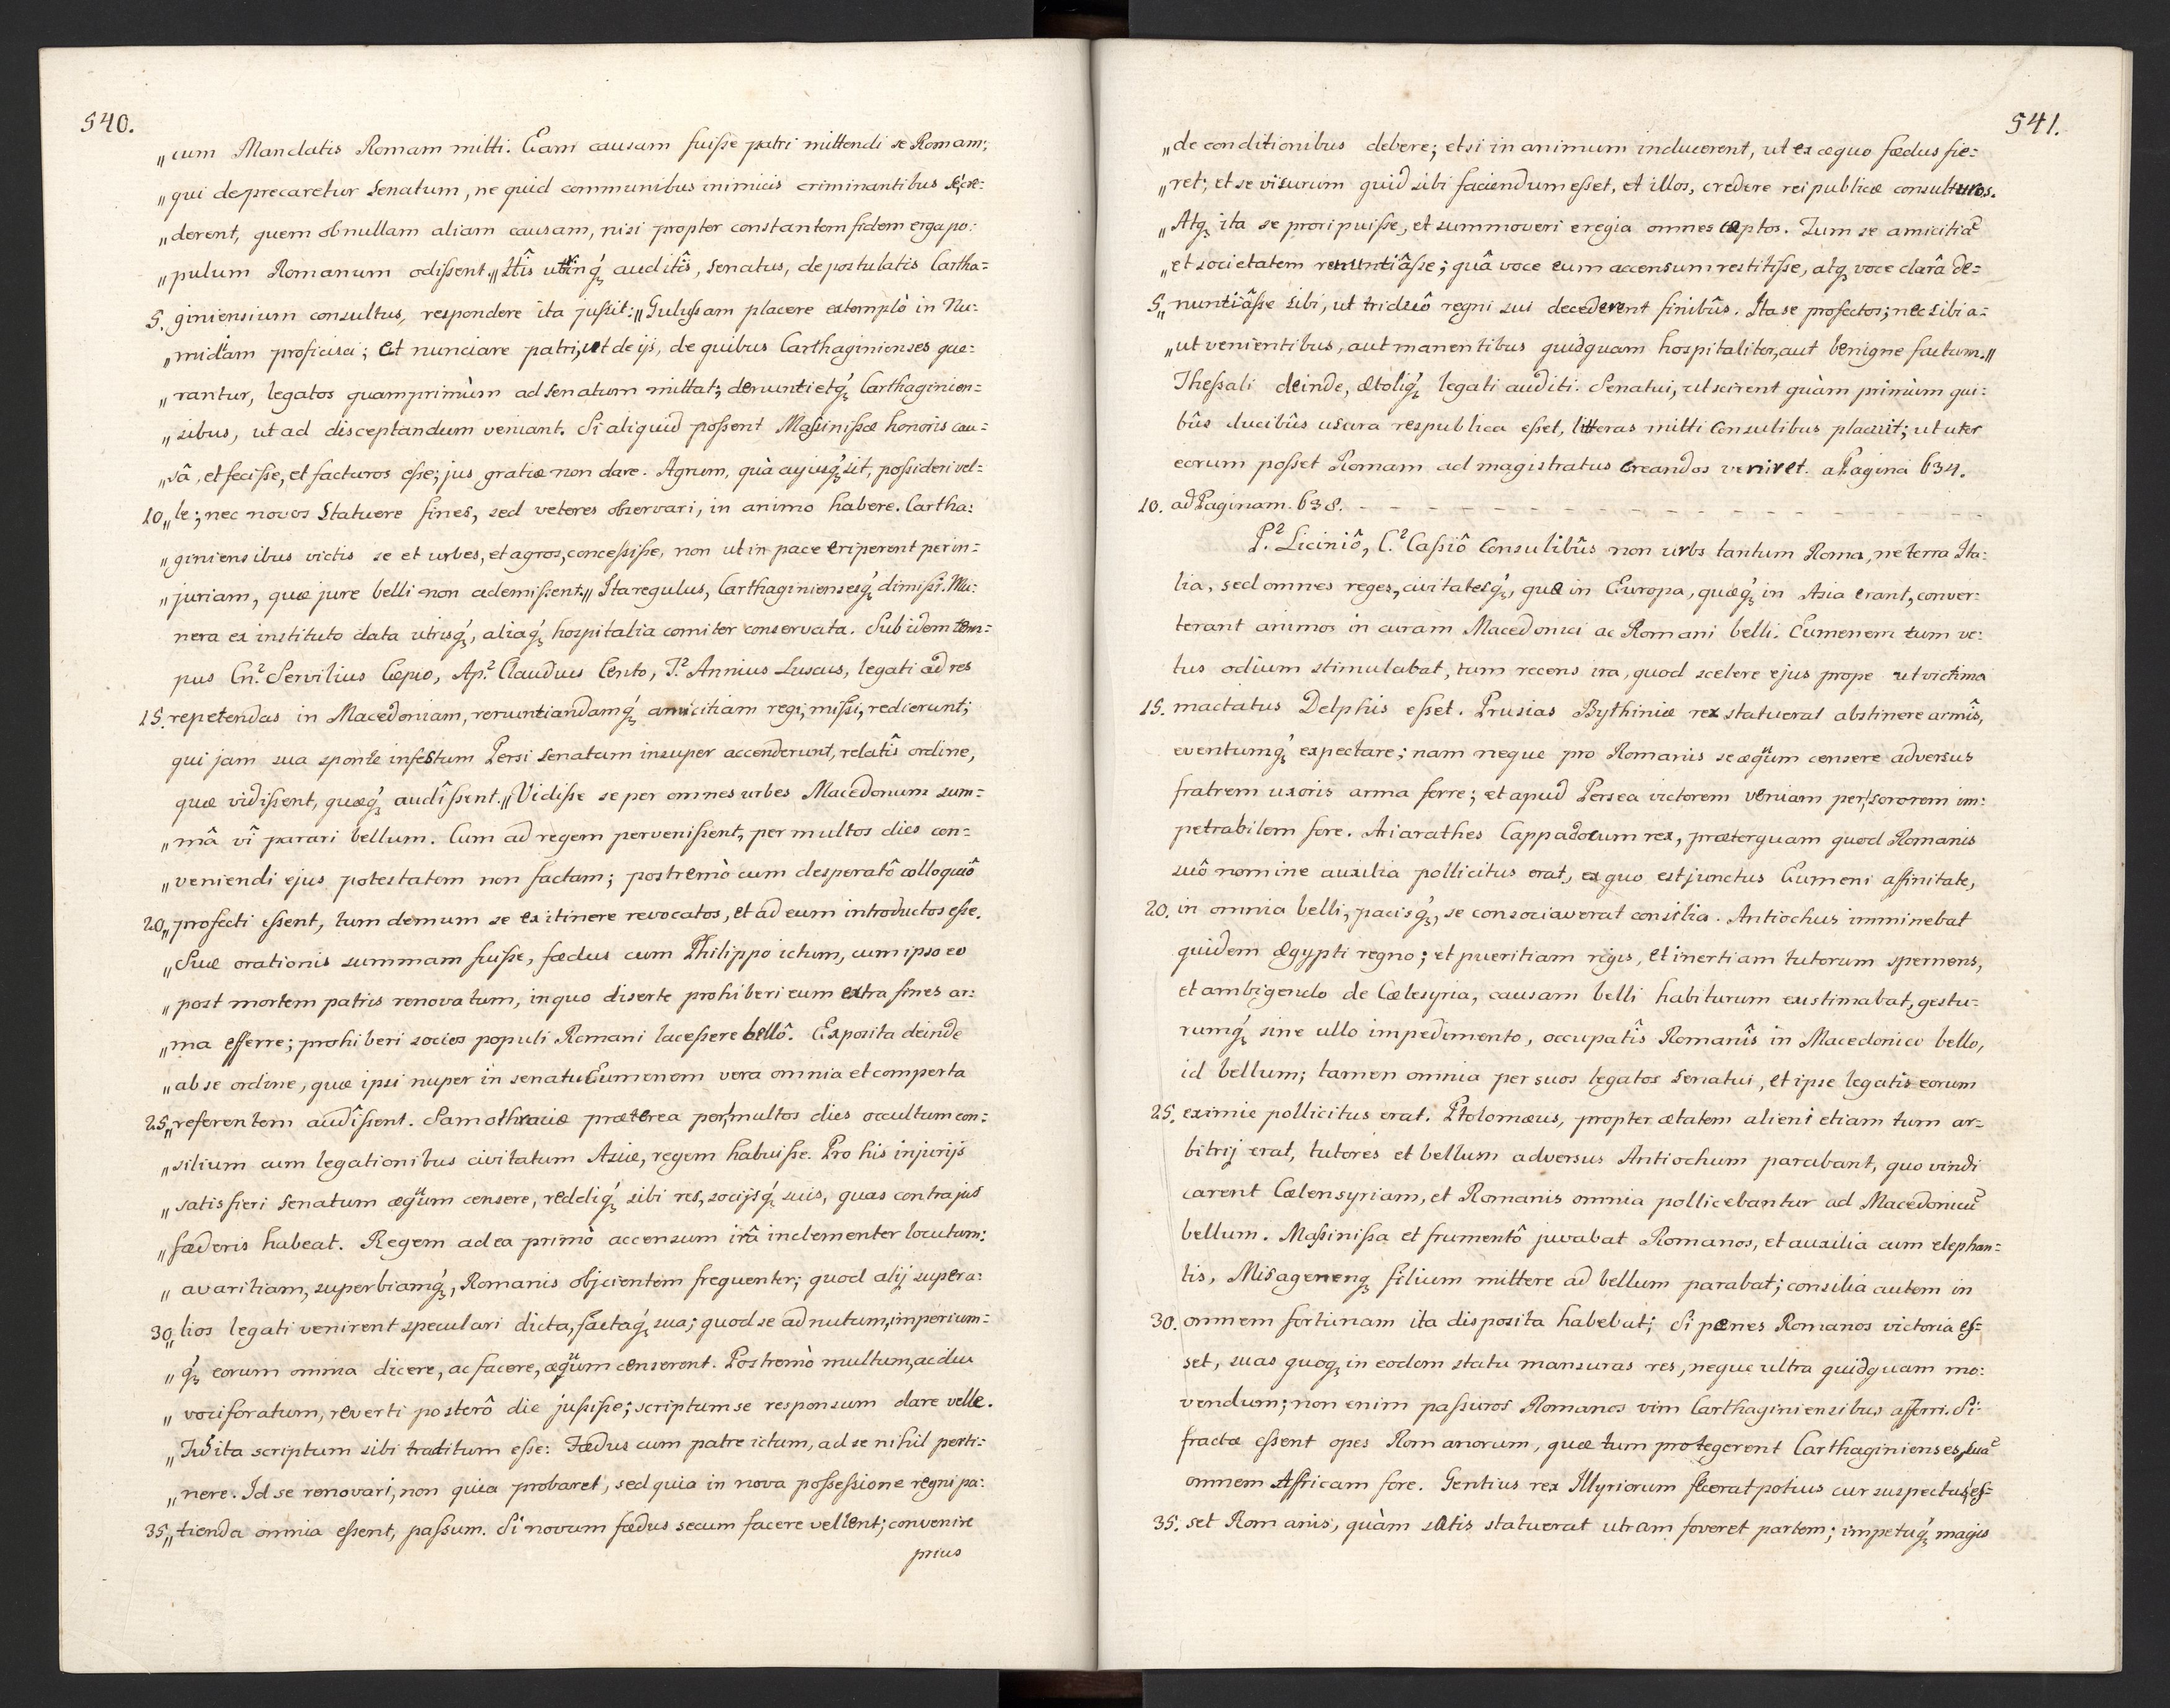 540.
„cum Mandatis Romam mitti. Eam causam fuisse patri mittendi se Romam;
„qui deprecaretur Senatum, ne quid communibus inimicis criminantibus se, cre=
„derent, quem ob nullam aliam causam, nisi propter constantem fidem erga po:
„pulum Romanum odissent.„ Hîs utrinq́ʒ auditîs, Senatus, de postulatis Cartha=
5. giniensium consultus, respondere ita jussit:„ Gulussam placere extemplò in Nu:
„midiam proficisci; et nunciare patri, ut de ijs, de quibus Carthaginienses que=
„rantur, legatos quamprimùm ad Senatum mittat; denuntietq́ʒ Carthaginien=
„sibus, ut ad disceptandum veniant. Si aliquid possent Masinissæ honoris cau=
„sâ, et fecisse, et facturos esse; jus gratiæ non dare. Agrum, quà cujusq́ʒ sit, possideri vel=
10„le; nec novos Statuere fines, sed veteres observari, in animo habere. Cartha:
„giniensibus victis se et urbes, et agros, concessisse, non ut in pace eriperent per in=
„juriam, quæ jure belli non ademissent.„ Ita regulus, Carthaginiensesq́ʒ dimissi. Mu:
nera ex instituto data utrisq́ʒ, aliaq́ʒ hospitalia comiter conservata. Sub idem tem=
pus Cn.² Servilius Cæpio, Ap.² Claudius Cento, T.² Annius Luscus, legati ad res
15. repetendas in Macedoniam, renuntiandamq́ʒ amicitiam regi, missi, redierunt;
qui jam sua sponte infestum Persi Senatum insuper accenderunt, relatîs ordine,
quæ vidissent, quæq́ʒ audîssent.„ Vidisse se per omnes urbes Macedonum sum=
„mâ vî parari bellum. Cum ad regem pervenissent, per multos dies con=
„veniendi ejus potestatem non factam; postremò cum desperatô colloquiô
20„profecti essent, tum demum se ex itinere revocatos, et ad eum introductos esse.
„Suæ orationis summam fuisse, fædus cum Philippo ictum, cum ipso eo
„post mortem patris renovatum, in quo diserte prohiberi eum extra fines ar:
„ma efferre; prohiberi socios populi Romani lacessere bellô. Exposita deinde
„ab se ordine, quæ ipsi nuper in senatu Eumenem vera omnia et comperta
25„referentem audîssent. Samothraciæ præterea per multos dies occultum con=
„silium cum legationibus civitatum Asiæ, regem habuisse. Pro his injurijs
„satisfieri Senatum æqűm censere, reddiq́ʒ sibi res, socijsq́ʒ suis, quas contra jus
„fæderis habeat. Regem ad ea primò accensum irâ inclementer locutum:
„avaritiam, superbiamq́ʒ, Romanis objcientem frequenter; quod alij supera:
30„lios legati venirent speculari dicta, factaq́ʒ sua; quod se ad nutum, imperium=
„q́ʒ eorum omnia dicere, ac facere, æqűm censerent. Postremò multum, ac diu
„vociferatum, reverti posterô die jussisse; scriptum se responsum dare velle.
„Tu͂ ita scriptum sibi traditum esse: Fædus cum patre ictum, ad se nihil perti=
„nere. Id se renovari, non quia probaret, sed quia in nova possessione regni pa:
35„tienda omnia essent, passum. Si novum fædus secum facere vellent; convenire
prius
541.
„de conditionibus debere; et si in animum inducerent, ut ex æquo fædus fie=
„ret; et se visurum quid sibi faciendum esset, et illos, credere reipublicæ consulturos.
„Atqʒ ita se proripuisse, et summoveri e regia omnes cæptos. Tum se amicitia͂
„et societatem renuntiâsse; quâ voce eum accensum restitisse, atqʒ voce clarâ de=
5„nuntiâsse sibi, ut triduô regni sui decederent finibûs. Ita se profectos; nec sibi a=
„ut venientibus, aut manentibus quidquam hospitaliter, aut benigne factum.„
Thessali deinde, ætoliq́ʒ legati auditi. Senatui, ut scirent quàm primùm qui:
bûs ducibûs usura respublica esset, litteras mitti Consulibus placuit; ut uter
eorum posset Romam ad magistratus creandos veniret. a Pagina 634.
10. ad Paginam. 638. - - - - - - - - - - - - - - - -
P.² Liciniô, C.² Cassiô Consulibûs non urbs tantum Roma, ne terra Ita:
lia, sed omnes reges, civitatesq́ʒ, quæ in Europa, quæq́ʒ in Asia erant, conver:
terant animos in curam Macedonici ac Romani belli. Eumenem tum ve:
tus odium stimulabat, tum recens ira, quod scelere ejus prope ut victima
15. mactatus Delphis esset. Prusias Bythiniæ rex statuerat abstinere armîs,
eventumq́ʒ expectare; nam neque pro Romanis se æqűm censere adversus
fratrem uxoris arma ferre; et apud Persea victorem veniam per sororem im:
petrabilem fore. Ariarathes Cappadocum rex, præterquam quod Romanis
suô nomine auxilia pollicitus erat, ex quo est junctus Eumeni affinitate,
20. in omnia belli, pacisq́ʒ, se consociaverat consilia. Antiochus imminebat
quidem Ægypti regno; et pueritiam regis, et inertiam tutorum spernens,
et ambigendo de Cælesyria, causam belli habiturum existimabat, gestu=
rumq́ʒ sine ullo impedimento, occupatîs Romanîs in Macedonico bello,
id bellum; tamen omnia per suos legatos senatui, et ipse legatis eorum
25. eximie pollicitus erat. Ptolomæus, propter ætatem alieni etiam tum ar=
bitrij erat, tutores et bellum adversus Antiochum parabant, quo vindi
carent Cælensyriam, et Romanis omnia pollicebantur ad Macedonicu͂
bellum. Masinissa et frumentô juvabat Romanos, et auxilia cum elephan=
tis, Misagenenqʒ filium mittere ad bellum parabat; consilia autem in
30. omnem fortunam ita disposita habebat; Si pænes Romanos victoria es=
set, suas quoqʒ in eodem statu mansuras res, neque ultra quidquam mo:
vendum; non enim passuros Romanos vim Carthaginiensibus afferri. Si
fractæ essent opes Romanorum, quæ tum protegerent Carthaginienses, sua͂
omnem Affricam fore. Gentius rex Illyriorum fecerat potius cur suspectus es=
35. set Romanis, quàm satis statuerat utram foveret partem; impetuq́ʒ magis